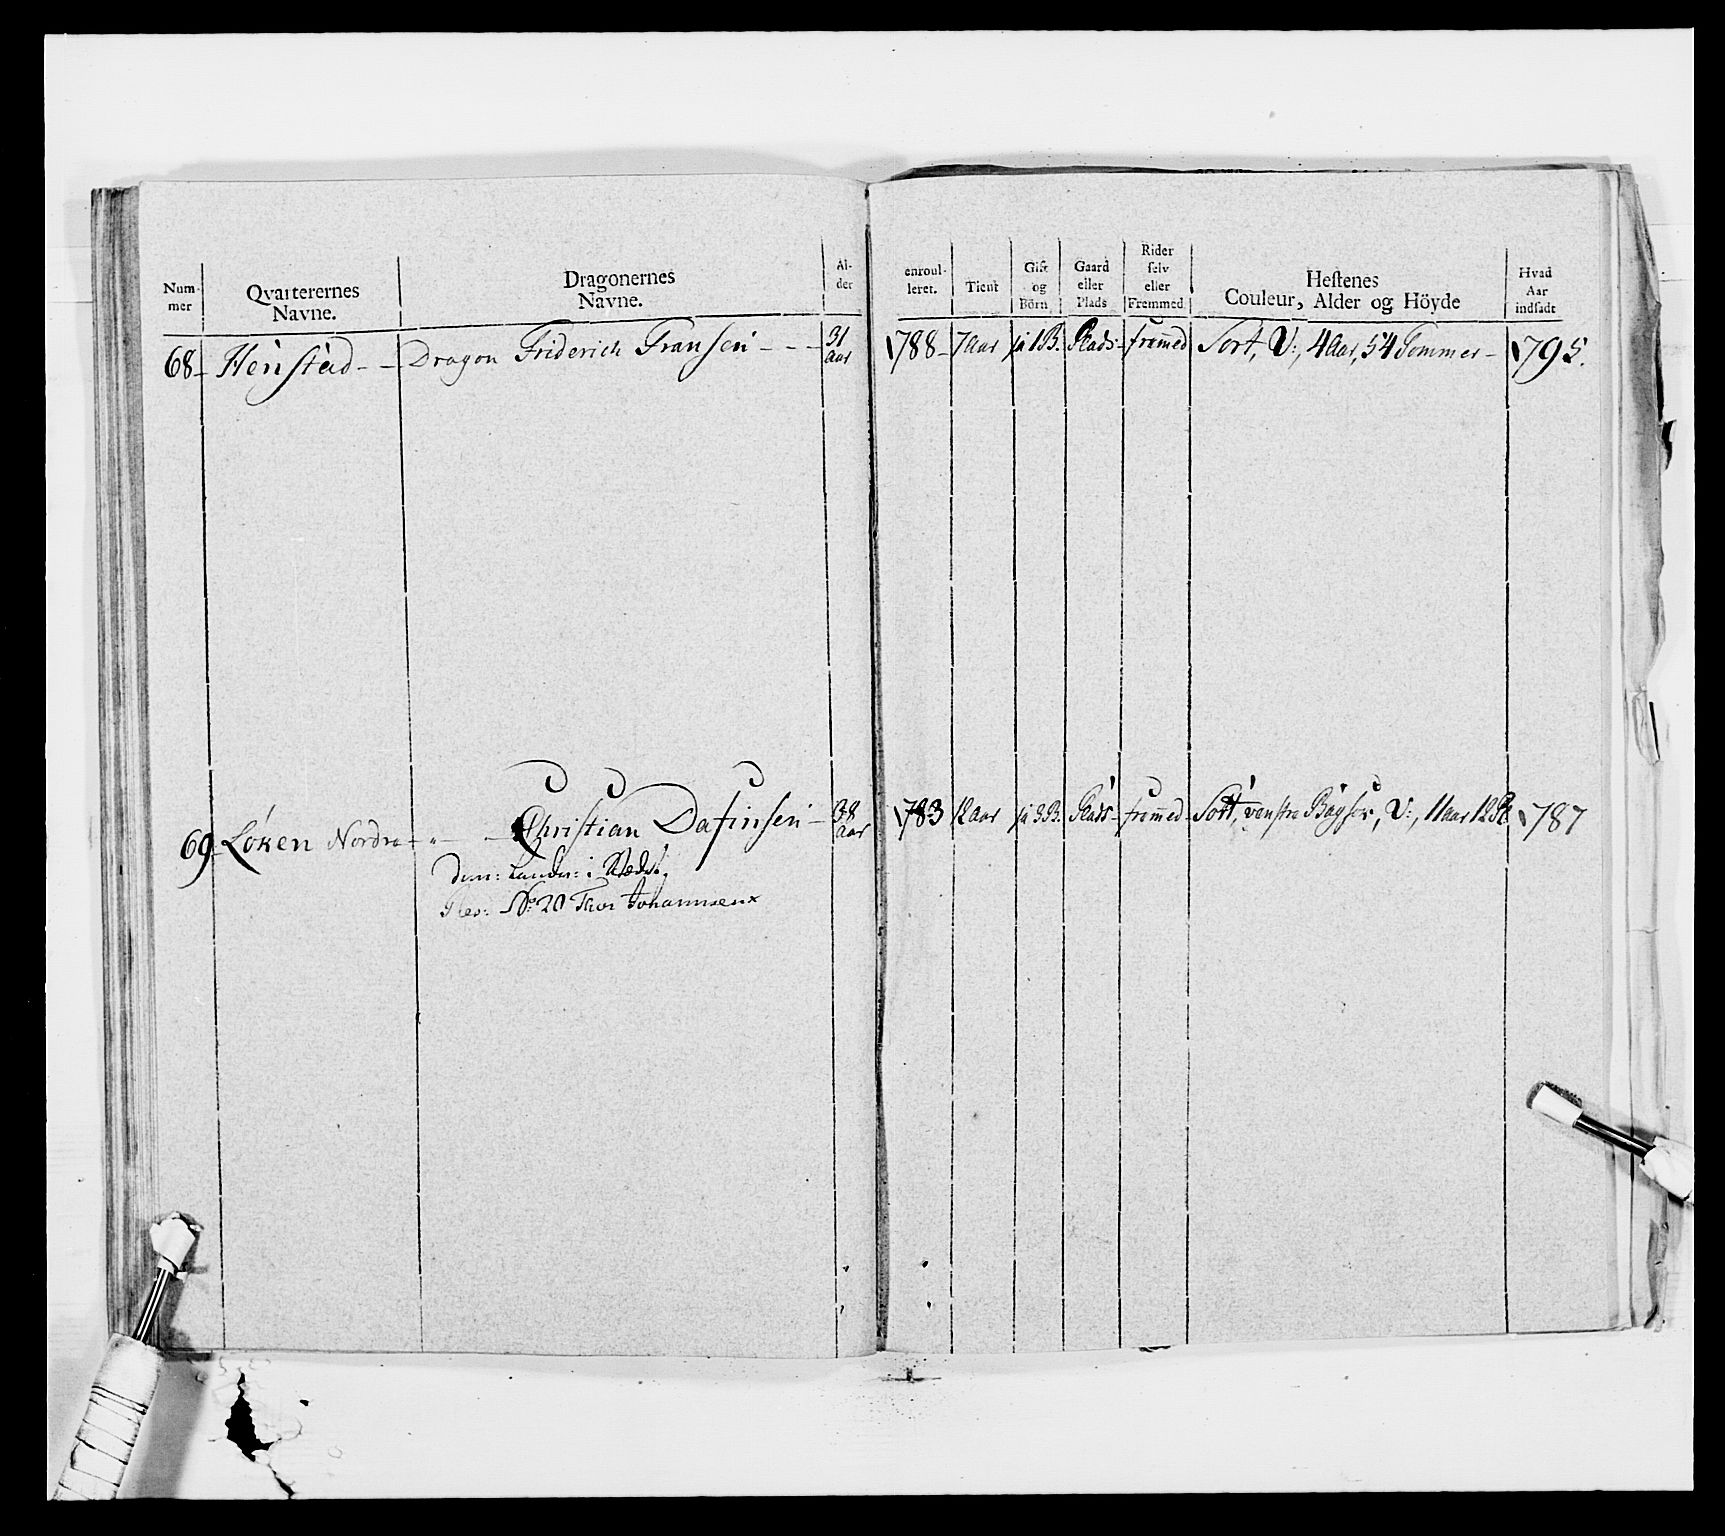 Num-
mer
Qvarterernes
Navne.
Dragonernes
Navne.
Al-
der
enroul-
leret.
Tient
Gift
og
Börn
Gaard
eller
Plads
Rider
selv
eller
Fremmed
Hestenes
Couleur, Alder og Höyde
Hvad
Aar
indsadt
68 Henstad Dragon Friderich Fransen 31 Aar 1788 7 Aar ja 1 B. Plads fremed Sort, V:, 4 Aar, 54 Tommer 1795.
69 Løken Nordre Christian Dafinsen 38 Aar 1783 12 aar ja 3 B. Plads fremmed Sort, venstre Bagfod, V:, 11 aar 1787
i Stædet.
No: 20 Thor Johannsen